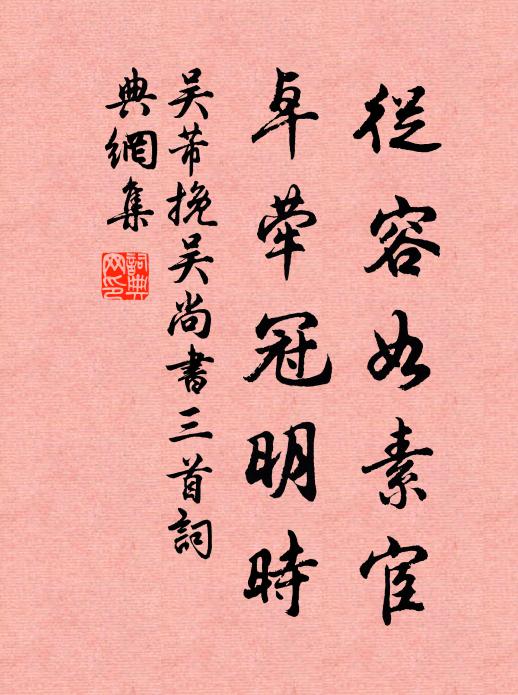 從容如素宦
卓犖冠明時
吳芾挽吳尚書三首詞
典網集
詞典網印